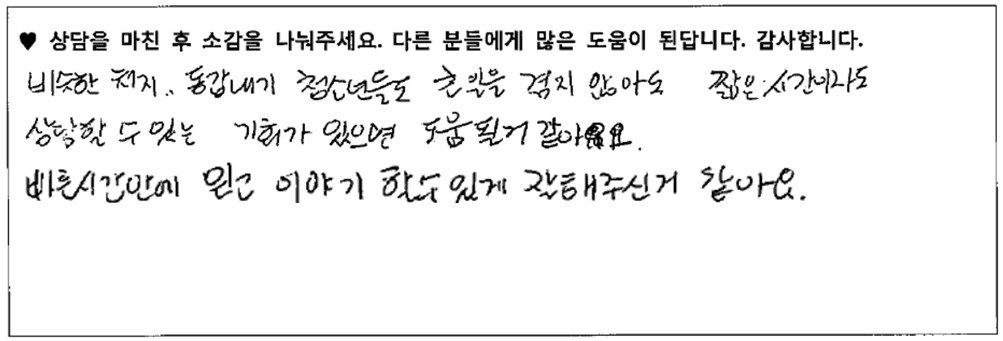 ♥ 상담을 마친 후 소감을 나눠주세요. 다른 분들에게 많은 도움이 된답니다. 감사합니다.
비슷한 처지.. 동갑내기 청소년들도 큰일을 겪지 않아도 짧은 시간이라도
상담할 수 있는 기회가 있으면 도움될거 같아요.
빠른시간안에 믿고 이야기 할수있게 잘해주신거 같아요.